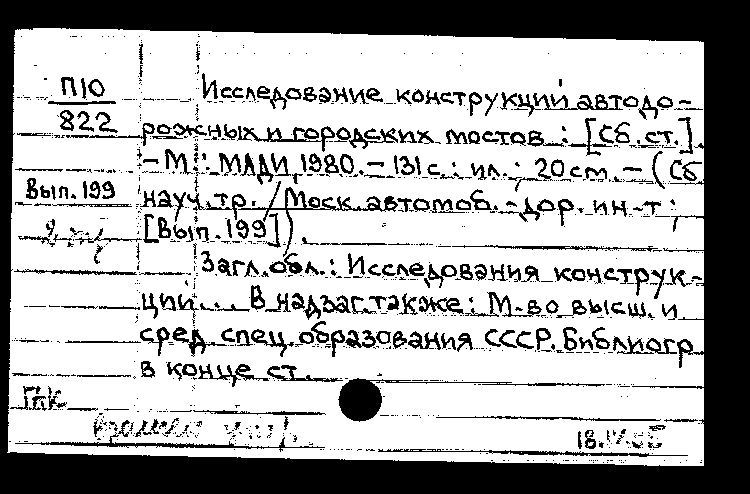 П10
822
Вып. 199
Исследование конструкций автодо-
рожных и городских мостов : [Сб. ст.].
- М. : МАДИ, 1980. - 131 с. : ил. ; 20 см. - (Сб
науч. тр. / Моск. автомоб. - дор. ин-т ;
[Вып. 199]).
Загл. обл.: Исследования конструк-
ций... В надзаг. также: М-во высш. и
сред. спец. образования СССР. Библиогр
в конце ст.
ГАК
18.